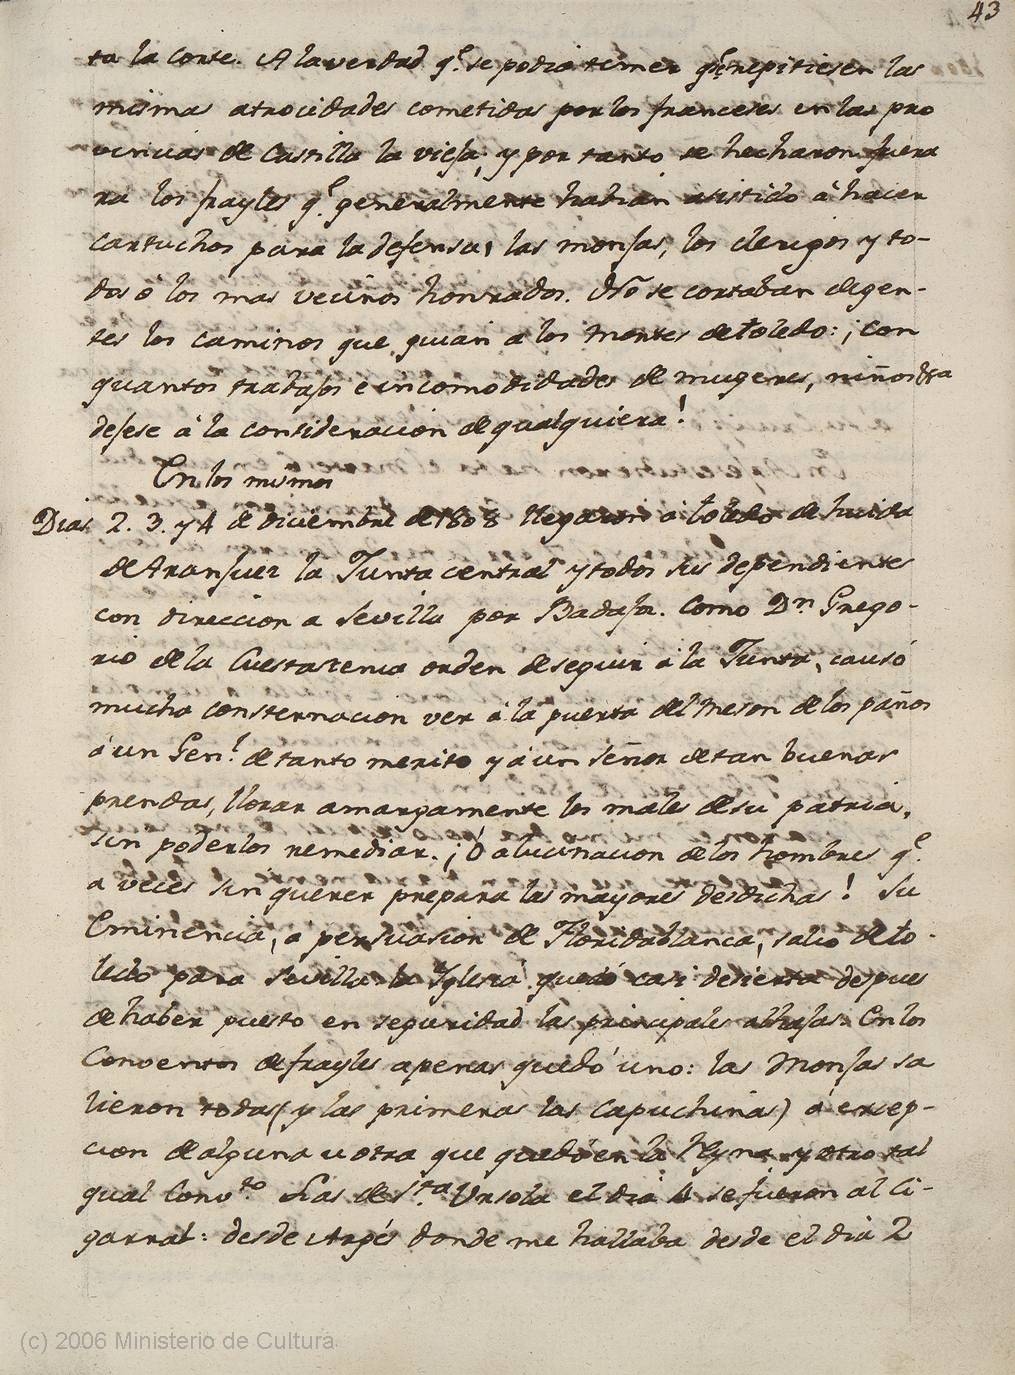 43
ta la Corte. A la verdad q.e se podia temer q.e repitiesen las
mismas atrocidades cometidas por los franceses en las pro
vincias de Castilla la vieja, y por tanto se hecharon fuera
ra los frayles q.e generalmente habian asistido á hacer
cartuchos para la defensa, las monjas, los clerigos y to-
dos ó los mas vecinos honrados. No se cortaban de gen-
tes los caminos que guian a los Montes de toledo: ¡con
quantos trabajos e incomodidades de mugeres, niños &a
dejese á la consideracion de qualquiera!
En los mismos
Dias 2. 3. y 4 de diciembre de 1808 llegaron a toledo de huida
de Aranjuez la Junta central y todos sus dependientes
con direccion a Sevilla por Badajoz. Como Dn Grego-
rio de la Cuesta tenia orden de seguir á la Junta, causó
mucha consternacion ver á la puerta del Meson de los paños
á un Gen.l de tanto merito y á un señor de tan buenas
prendas, llorar amargamente los males de su patria,
sin poderlos remediar. ¡O alucinacion de los hombres q.e
a veces sin querer prepara las mayores desdichas! Su
Eminencia, a persuasion de Floridablanca, salio de to-
ledo para Sevilla la Iglesia quedó casi desierta despues
de haber puesto en seguridad las principales alhajas. En los
Conventos de frayles apenas quedó uno: las Monjas sa
lieron todas (y las primeras las Capuchinas) á excep-
cion de alguna u otra que quedó en la Reyna y otro tal
qual Conv.to Las de S.ta Ursola el dia 4 se fueron al Ci-
garral: desde Argés donde me hallaba desde el dia 2
(c) 2006 Ministerio de Cultura